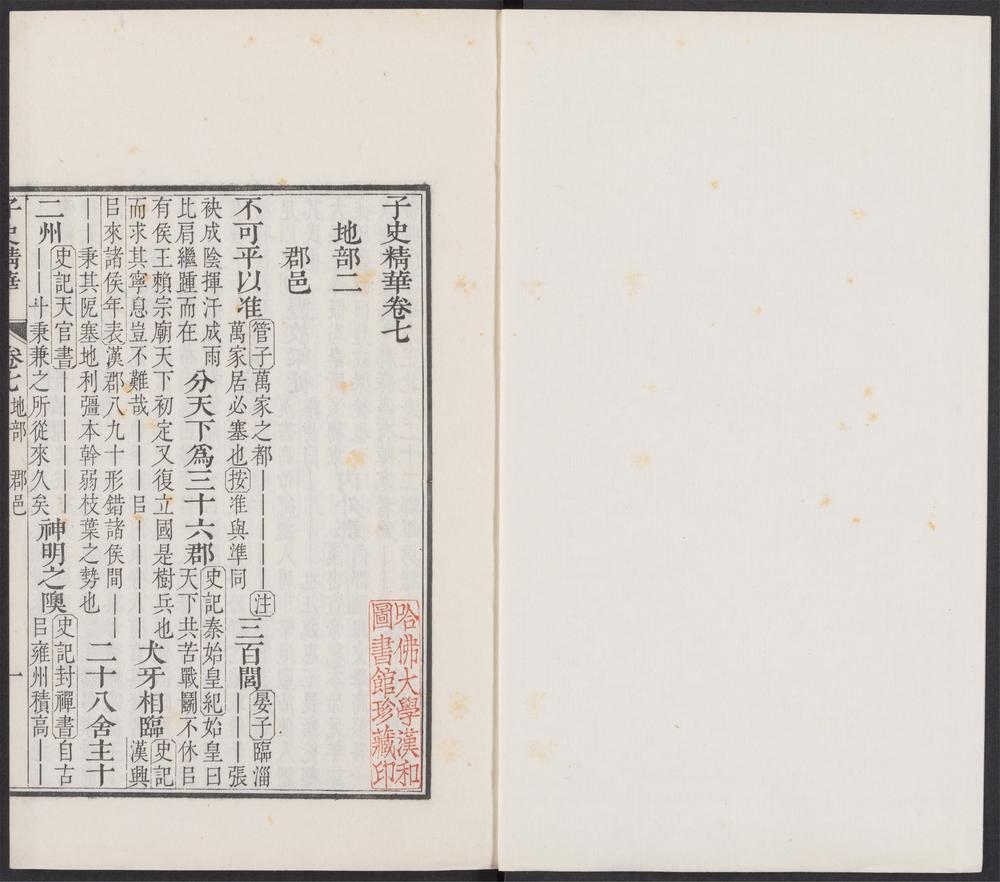 子史精華卷七
地部二
郡邑
不可平以准
管子萬家之都｜｜｜｜｜注
萬家居必塞也按准與準同
三百閭
晏子臨淄
｜｜｜張
袂成陰揮汗成雨
比肩繼踵而在
分天下爲三十六郡
史記秦始皇紀始皇曰
天下共苦戰鬭不休㠯
有侯王賴宗廟天下初定又復立國是樹兵也
而求其寧息豈不難哉｜｜｜㠯｜｜｜｜｜
犬牙相臨
史記
漢興
㠯來諸侯年表漢郡八九十形錯諸侯間｜｜
｜｜秉其阨塞地利彊本幹弱枝葉之勢也
二十八舍主十
二州
史記天官書｜｜｜｜｜｜
｜｜斗秉兼之所從來久矣
神明之隩
史記封禪書自古
㠯雍州積高｜｜
子史精華
卷七
地部
郡邑
一
哈佛大學漢和
圖書館珍藏印